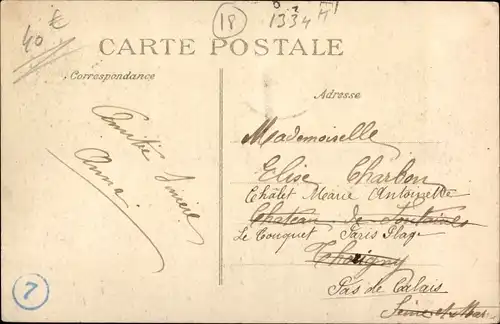 40 €
18
1334
CARTE POSTALE
Correspondance
Adresse
Amitié Sincère
Anna
Mademoiselle
Elise Charbon
Châlet Marie Antoinette
Chateau de Fontaines
Le Touquet Paris Plage
Thorigny
Pas de Calais
Seine et Mar
7